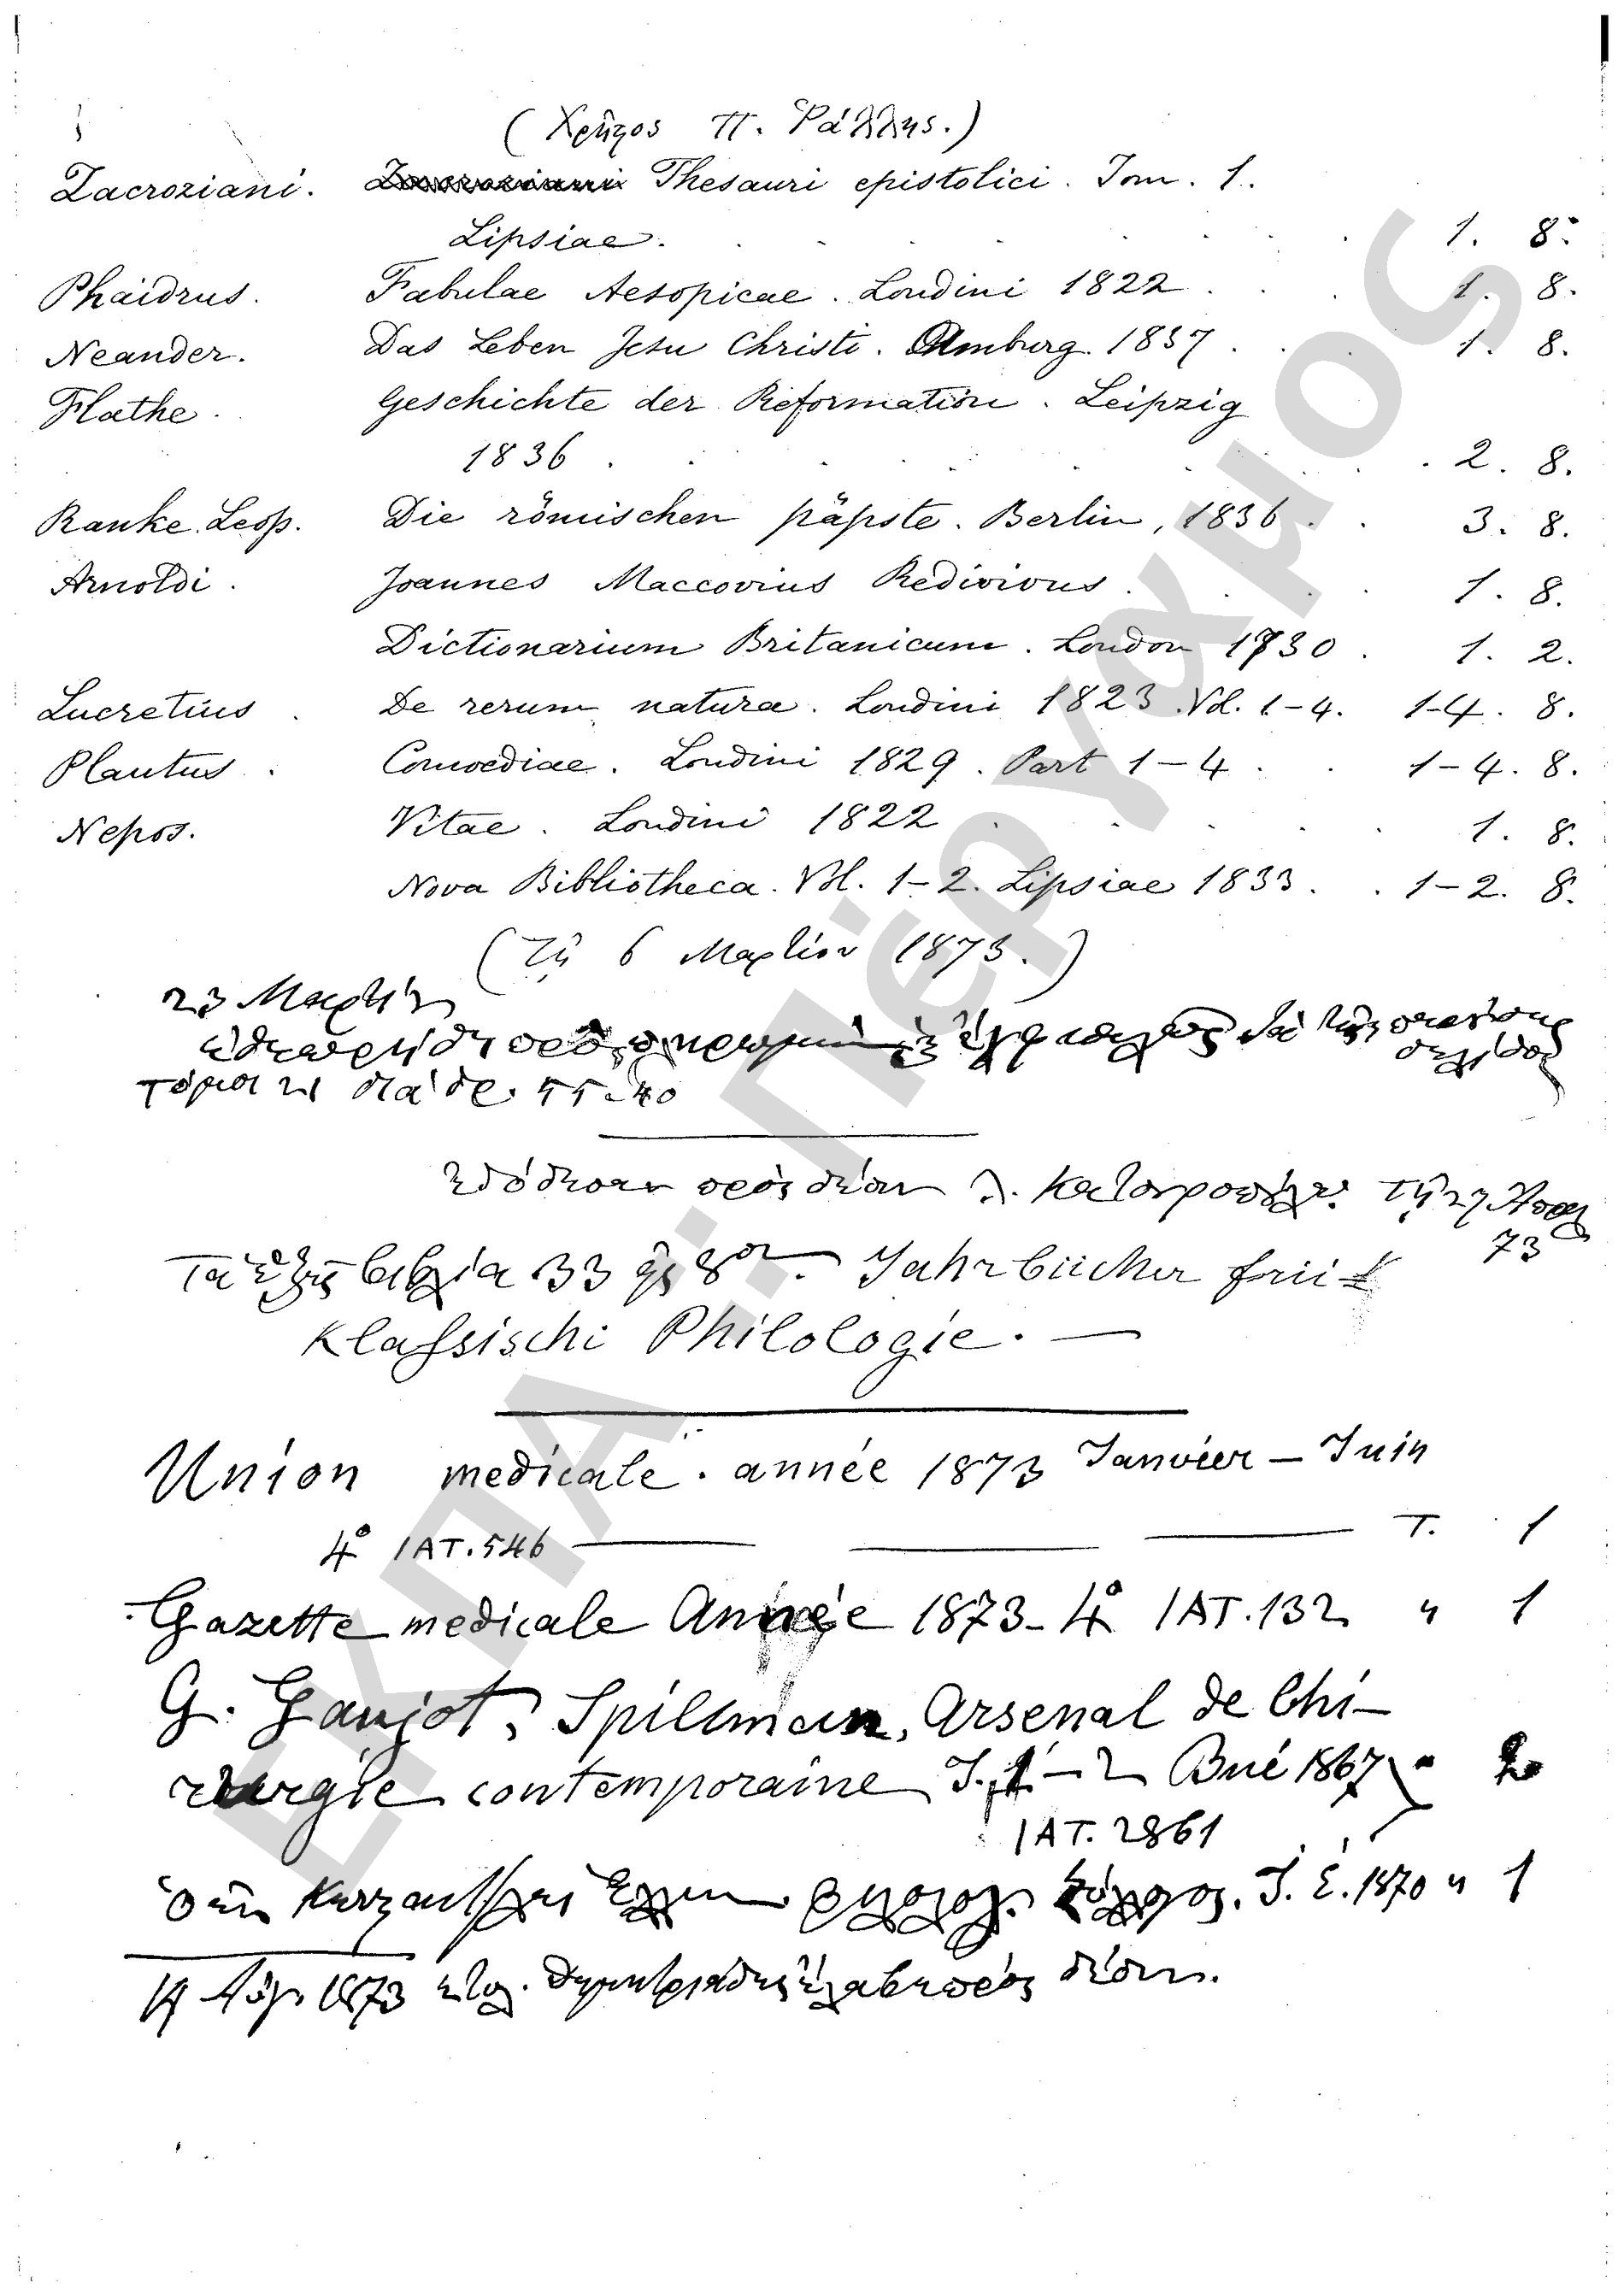 (Χρῆστος Π. Ράλλης.)
Lacroziani. Thesauri epistolici. Tom. 1.
Lipsiae. 1. 8.
Phaidrus. Fabulae Aesopicae. Londini 1822. 1. 8.
Neander. Das Leben Jesu Christi. Amburg. 1837. 1. 8.
Flathe. Geschichte der Reformation. Leipzig
1836. 2. 8.
Ranke Leop. Die römischen päpste. Berlin, 1836. 3. 8.
Arnoldi. Joannes Maccovius Redivivus. 1. 8.
Dictionarium Britanicum. London 1730. 1. 2.
Lucretius. De rerum natura. Londini 1823. Vol. 1-4. 1-4. 8.
Plautus. Comoediae. Londini 1829. Part 1-4. 1-4. 8.
Nepos. Vitae. Londini 1822. 1. 8.
Nova Bibliotheca. Vol. 1-2. Lipsiae 1833. 1-2. 8.
(Τῇ 6 Μαρτίου 1873.)
23 Μαρτίου
τόμοι 21 διὰ δρ.
ἐδόθησαν πρὸς δέσιν
73
Τὰ ἑξῆς βιβλία 33 εἰς 8ον. Jahrbücher für
Klassische Philologie.
Union medicale. année 1873 Janvier - Juin
4° ΙΑΤ. 546 Τ. 1
Gazette medicale Année 1873 - 4° ΙΑΤ. 132 " 1
G. Gaujot, Spillman, Arsenal de Chi-
rurgie contemporaine T. 1-2 1867 " 2
ΙΑΤ. 2861
Ὁ ἐν Κων/πόλει Ἑλλην. φιλολογ. Σύλλογος. Τ. Ε. 1870 " 1
Αὐγ. 1873 Δημητριάδης ἔλαβε πρὸς δέσιν.
ΕΚΠΑ: Πέργαμος